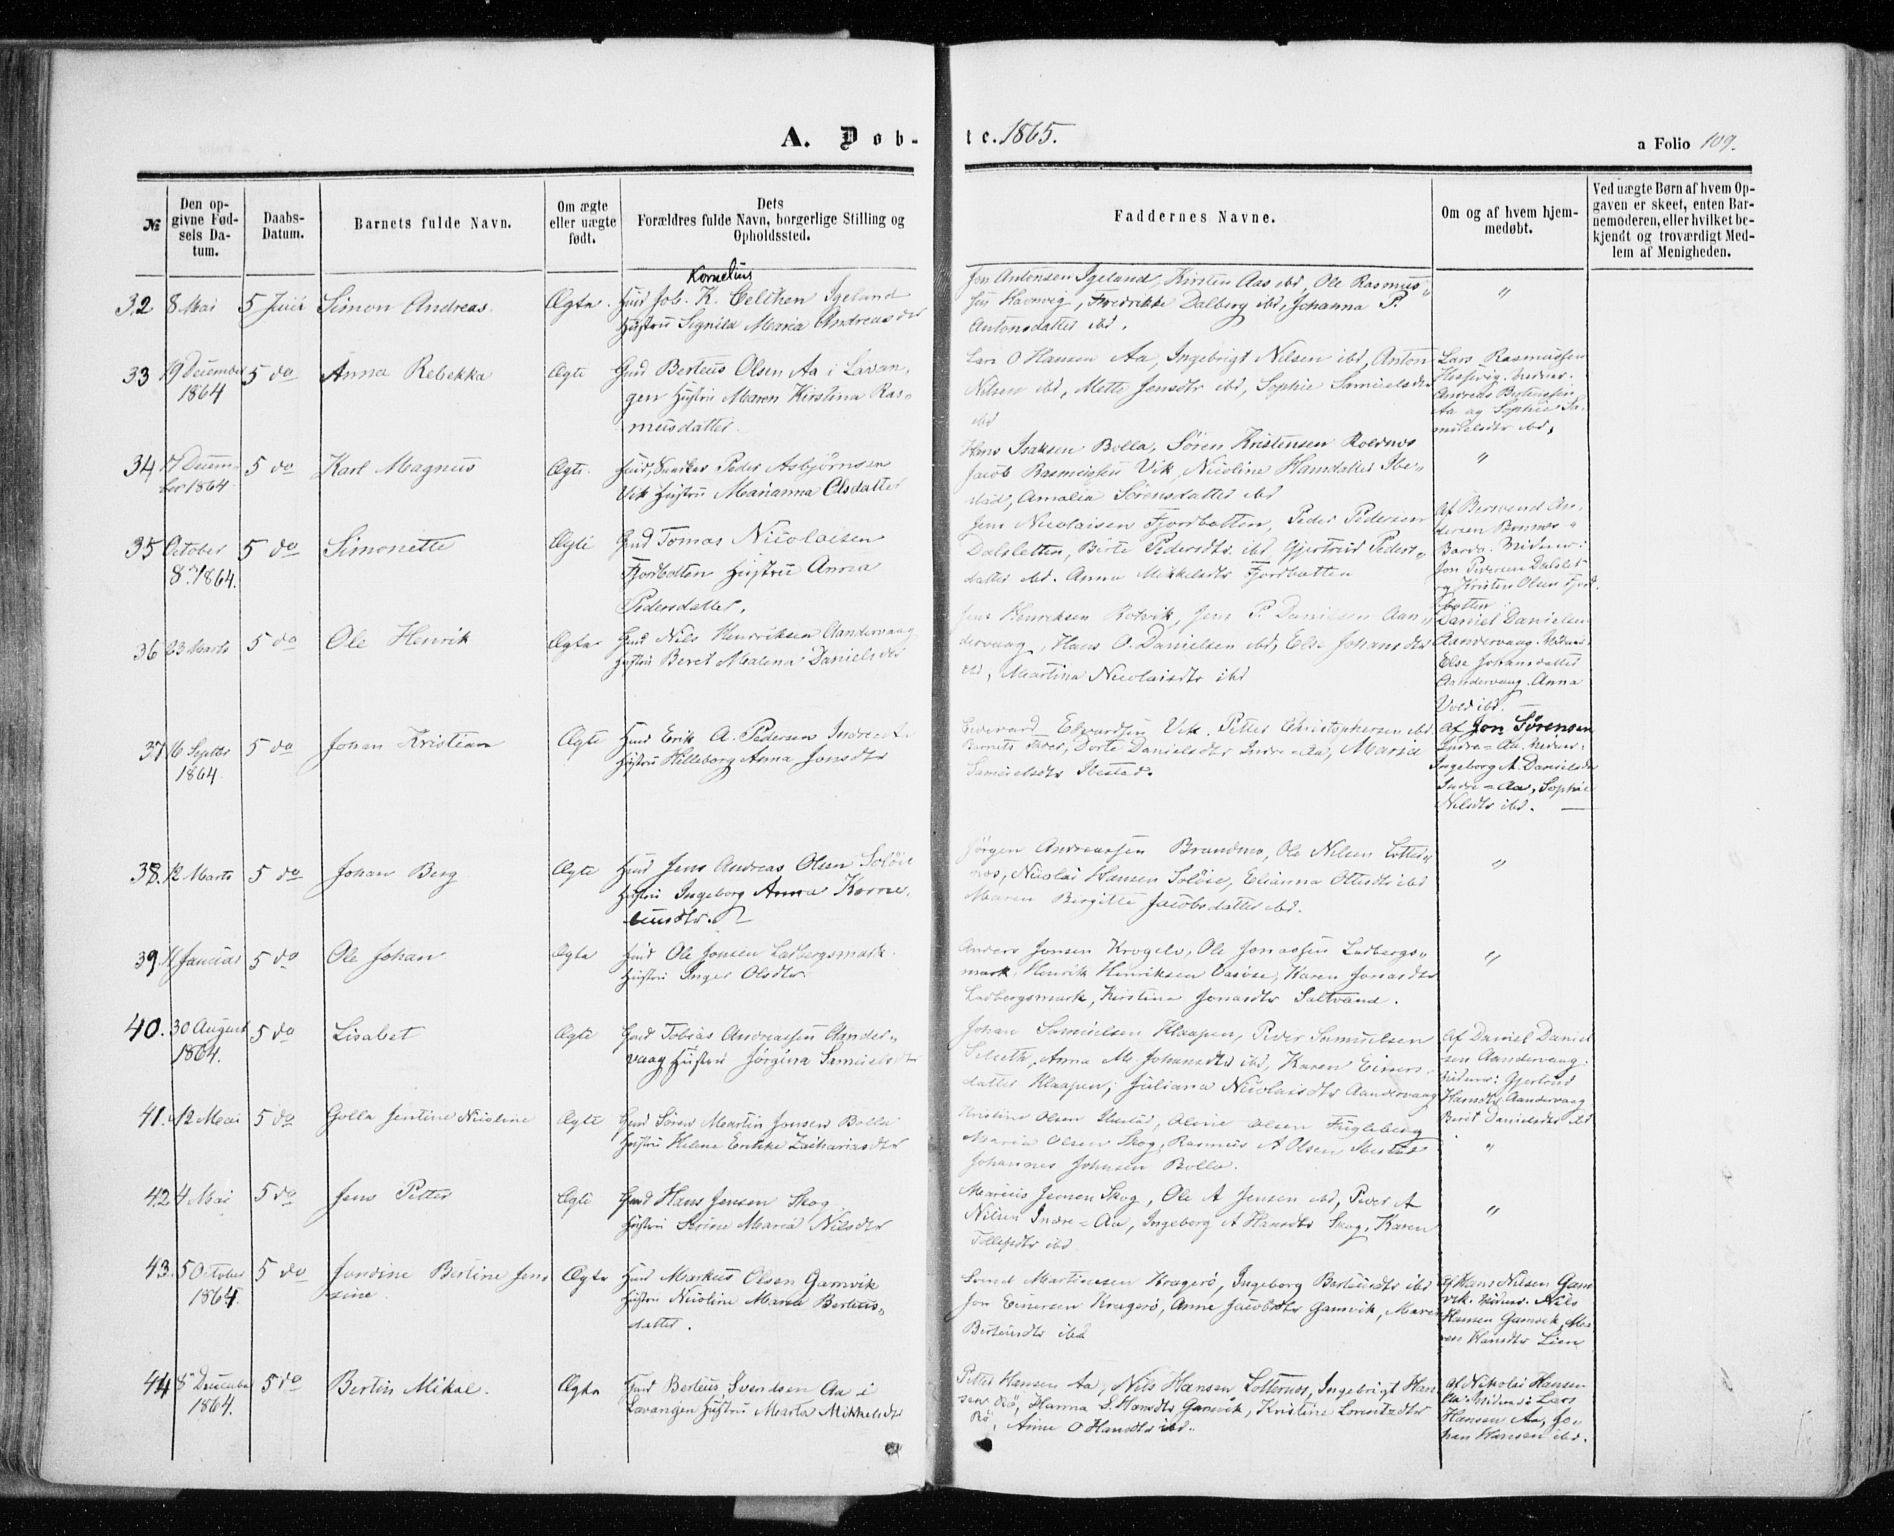 A. Dobte. 1865.
a Folio 109.
№
Den opgivne Fødsels Datum.
Daabs-Datum.
Barnets fulde Navn.
Om ægte eller uægte født.
Dets Forældres fulde Navn, borgerlige Stilling og Opholdssted.
Faddernes Navne.
Om og af hvem hjemmedøbt.
Ved uægte Børn af hvem Opgaven er skeet, enten Barnemoderen, eller hvilket bekjendt og troværdigt Medlem af Menigheden.
32 8 Mai 5 Juni Simon Andreas. Ægte.
Kornelius
Husm. Joh. K. Igeland
Hustru Signild Maria Andreasdtr
Jon Antonsen Igeland, Kirsten Aas ibd, Ole Rasmus-
sen Havnvig, Fredrikke Dalberg ibd, Johanna P.
Antonsdatter ibd.
"
33 19 December 1864 5 do Anna Rebekka Ægte
Gmd Berteus Olsen Aa i Lavan-
gen Hustru Maren Kirstina Ras-
musdatter
Lars O Hansen Aa, Ingebrigt Nilsen ibd, Anton
Nilsen ibd, Mette Jensdtr ibd, Sophie Samuelsdtr
ibd
Lars Rasmussen
Andreas Berteussen
Aa og Sophie Sa-
muelsdtr ibd,
34 17 December 1864 5 do Karl Magnus Ægte.
Peder Asbjørnsen
Vik Hustru Marianna Olsdatter
Hans Isaksen Bolla, Søren Kristensen Roldnes
Jacob Rasmussen Vik, Nicoline Hansdatter Ibe-
stad, Amalia Sørensdatter ibd
"
35 October 8de 1864. 5 do Simonette Ægte
Gmd Tomas Nicolaisen
Fjordbotten Hustru Anna
Pedersdatter.
Jens Nicolaisen Fjordbotten, Peder Pedersen
Dalsletten, Birte Pedersdtr ibd, Gjertrud Peders-
datter ibd. Anna Mikkelsdtr Fjordbotten
Af Berovend An-
dersen
Bardo. Vidner:
Jon Pedersen Dalslet
og Kristen Olsen Fjord-
botten
36 23 Marts 5 do Ole Henrik Ægte
Gmd Nils Henriksen Aandervaag
Hustru Beret Malena Danielsdtr
Jens Henriksen Rotvik, Jens P. Danielsen Aan-
dervaag, Hans O. Danielsen ibd, Else Johansdtr
ibd, Martina Nicolaisdtr ibd
Daniel Danielsen
Aandervaag. Vidner:
Else Johansdatter
Aandervaag. Anna
ibd.
37 16 Septbr 1864. 5 do Johan Kristian Ægte
Husm Erik A. Pedersen Indre Aa
Hustru Hilleborg Anna Jonsdtr
Edvardsen Vik. Petter Christophersen ibd
Dorte Danielsdtr Indre-Aa, Maria
Samuelsdtr Ibestad.
Af Jon Sørensen
Indre-Aa. Vidner:
Ingeborg A. Danielsdtr
Indre-Aa, Sophie
Nilsdtr ibd.
38. 12 Marts 5 do Johan Berg Ægte
Husm Jens Andreas Olsen Soløie
Hustru Ingeborg Anna Korne-
liusdtr.
Jørgen Andreassen Brandmo, Ole Nilsen Lotter-
nes, Nicolai Hansen Soløie, Elianna Ottesdtr ibd
Maren Birgitte Jacobsdatter ibd.
"
39. 11 Januar 5 do Ole Johan Ægte
Husm Ole Jonsen Ladbergsmark.
Hustru Inger Olsdtr
Anders Jonsen Krogelv, Ole Jonassen Ladbergs-
mark, Henrik Henriksen Vasøse, Karen Jonasdtr
Ladbergsmark, Kirstina Jonasdtr Saltvand.
"
40. 30 August 1864. 5 do Lisabet Ægte
Gmd Tobias Andreassen Aander-
vaag Hustru Jørgina Samuelsdtr
Johan Samuelsen Klaapen, Peder Samuelsen
Selseth, Anna M. Johansdtr ibd, Karen Einers-
datter Klaapen, Juliana Nicolaisdtr Aandervaag
Af Daniel Daniel-
sen Aandervaag.
Vidner: Gjertrud
Hansdtr Aandervaag
Beret Danielsdtr ibd
41. 12 Mai 5 do Golla Jentine Nicoline Ægte
Gmd Søren Martin Jensen Bolla
Hustru Helene Enrikke Zachariasdtr
Kristine Olsen Ibestad, Olvine Olsen Fugleberg
Maria Olsen Skog, Rasmus A Olsen Ibestad
Johannes Johnsen Bolla.
"
42 4 Mai 5 do Jens Petter Ægte
Gmd Hans Jensen Skog
Hustru Serine Maria Nilsdtr
Marius Jensen Skog, Ole A Jensen ibd, Peder A
Nilsen Indre-Aa, Ingeborg A Hansdtr Skog, Karen
Tollefsdtr ibd
"
43. 5 October 1864. 5 do Jondine Bertine Jen-
sine. Ægte
Husm Markus Olsen Gamvik
Hustru Nicoline Maria Berteus-
datter.
Svend Martinusen Kragerø, Ingeborg Berteusdtr ibd
Jon Einersen Kragerø, Anne Jacobsdtr Gamvik, Maren
Berteusdtr ibd
Af Hans Nilsen Gam-
vik. Vidner. Nils
Hansen Gamvik, Ma-
ren Hansdtr Lien
44 8de December 1864. 5 do Bertin Mikal. Ægte
Husm Berteus Svendsen Aa i
Lavangen Hustru Marta Mikkelsdtr
Petter Hansen Aa, Nils Hansen Lotternes, Ingebrigt Han-
sen Rø, Hanna S. Hansdtr Gamvik, Kristine Lorentzdtr
Rø, Anne O Hansdtr ibd.
Af Nikolai Hansen
Aa. Vidner: Lars
Hansen Aa, Jo-
han Hansen ibd.